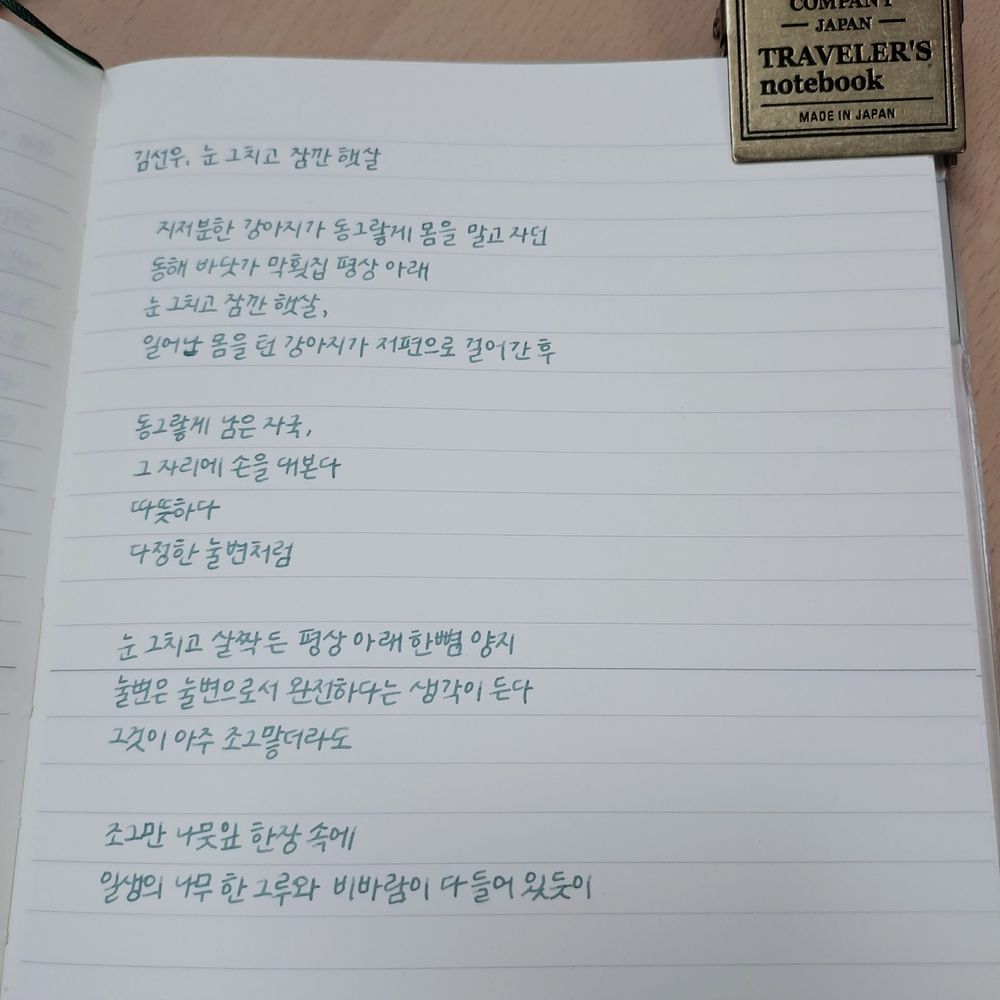 COMPANY
JAPAN
TRAVELER'S
notebook
MADE IN JAPAN
김선우, 눈 그치고 잠깐 햇살
지저분한 강아지가 동그랗게 몸을 말고 자던
동해 바닷가 막횟집 평상 아래
눈 그치고 잠깐 햇살,
일어난 몸을 턴 강아지가 저편으로 걸어간 후
동그랗게 남은 자국,
그 자리에 손을 대본다
따뜻하다
다정한 눌변처럼
눈 그치고 살짝 든 평상 아래 한뼘 양지
눌변은 눌변으로서 완전하다는 생각이 든다
그것이 아주 조그맣더라도
조그만 나뭇잎 한장 속에
일생의 나무 한 그루와 비바람이 다 들어 있듯이